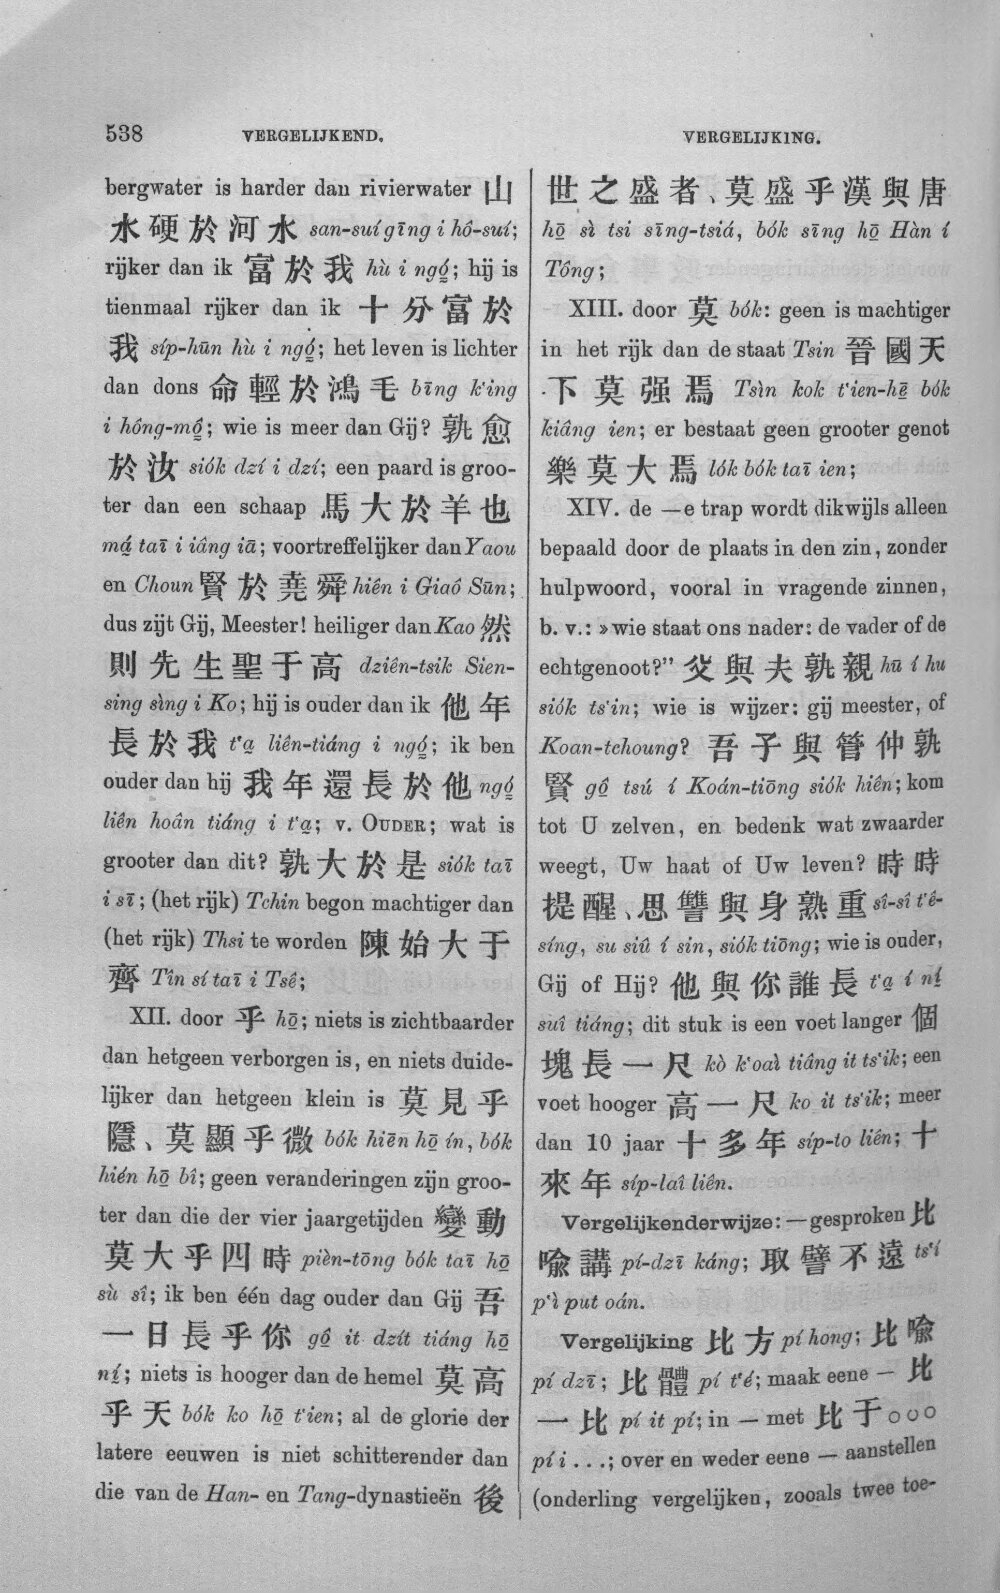 538
VERGELIJKEND.
VERGELIJKING.
bergwater is harder dan rivierwater 山
水硬於河水 san-suí gīng i hô-suí;
rijker dan ik 富於我 hù i ngó̤; hij is
tienmaal rijker dan ik 十分富於
我 síp-hūn hù i ngó̤; het leven is lichter
dan dons 命輕於鴻毛 bīng k'ing
i hông-mô̤; wie is meer dan Gij? 孰愈
於汝 siók dzí i dzí; een paard is groo-
ter dan een schaap 馬大於羊也
má̤ taī i iâng iā; voortreffelijker dan Yaou
en Choun 賢於堯舜 hiên i Giaô Sūn;
dus zijt Gij, Meester! heiliger dan Kao 然
則先生聖于高 dziên-tsik Sien-
sing sìng i Ko; hij is ouder dan ik 他年
長於我 t'a̤ liên-tiáng i ngó̤; ik ben
ouder dan hij 我年還長於他 ngó̤
liên hoân tiáng i t'a̤; v. OUDER; wat is
grooter dan dit? 孰大於是 siók taī
i sī; (het rijk) Tchin begon machtiger dan
(het rijk) Thsi te worden 陳始大于
齊 Tîn sí taī i Tsê;
XII. door 乎 hō̤; niets is zichtbaarder
dan hetgeen verborgen is, en niets duide-
lijker dan hetgeen klein is 莫見乎
隱、莫顯乎微 bók hiēn hō̤ ín, bók
hién hō̤ bî; geen veranderingen zijn groo-
ter dan die der vier jaargetijden 變動
莫大乎四時 pièn-tōng bók taī hō̤
sù sî; ik ben één dag ouder dan Gij 吾
一日長乎你 gô̤ it dzít tiáng hō̤
ní̤; niets is hooger dan de hemel 莫高
乎天 bók ko hō̤ t'ien; al de glorie der
latere eeuwen is niet schitterender dan
die van de Han- en Tang-dynastieën 後
世之盛者、莫盛乎漢與唐
hō̤ sì tsi sīng-tsiá, bók sīng hō̤ Hàn í
Tông;
XIII. door 莫 bók: geen is machtiger
in het rijk dan de staat Tsin 晉國天
下莫强焉 Tsìn kok t'ien-hē̤ bók
kiâng ien; er bestaat geen grooter genot
樂莫大焉 lók bók taī ien;
XIV. de —e trap wordt dikwijls alleen
bepaald door de plaats in den zin, zonder
hulpwoord, vooral in vragende zinnen,
b. v.: »wie staat ons nader: de vader of de
echtgenoot?" 父與夫孰親 hū í hu
siók ts'in; wie is wijzer: gij meester, of
Koan-tchoung? 吾子與管仲孰
賢 gô̤ tsú í Koán-tiōng siók hiên; kom
tot U zelven, en bedenk wat zwaarder
weegt, Uw haat of Uw leven? 時時
提醒、思讐與身孰重 sî-sî t'ê-
síng, su siû í sin, siók tiōng; wie is ouder,
Gij of Hij? 他與你誰長 t'a̤ í ní̤
suî tiáng; dit stuk is een voet langer 個
塊長一尺 kò k'oaì tiâng it ts'ik; een
voet hooger 高一尺 ko it ts'ik; meer
dan 10 jaar 十多年 síp-to liên; 十
來年 síp-laî liên.
Vergelijkenderwijze: —gesproken 比
喩講 pí-dzī káng; 取譬不遠 ts'í
p'ì put oán.
Vergelijking 比方 pí hong; 比喩
pí dzī; 比體 pí t'é; maak eene — 比
一比 pí it pí; in — met 比于○○○
pí i ...; over en weder eene — aanstellen
(onderling vergelijken, zooals twee toe-